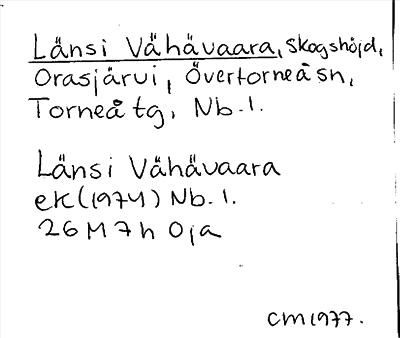 Länsi Vähävaara, skogshöjd,
Orasjärvi, Övertorneå sn,
Torneå tg, Nb.l.
Länsi Vähävaara
ek (1974) Nb.l.
26 M 7 h Oja
CM 1977.